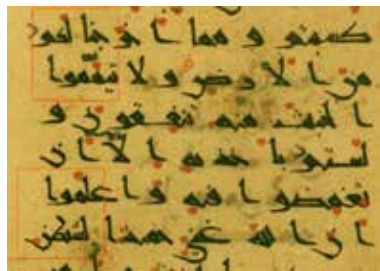 كسبتم و مما ا خر جنا لكم
من ا لا رض و لا تيمموا
ا لخبيث منه تنفقون و
لستم با خذيه ا لا ا ن
تغمضوا فيه و ا علموا
ا ن ا لله غني حميد ا لشيطن